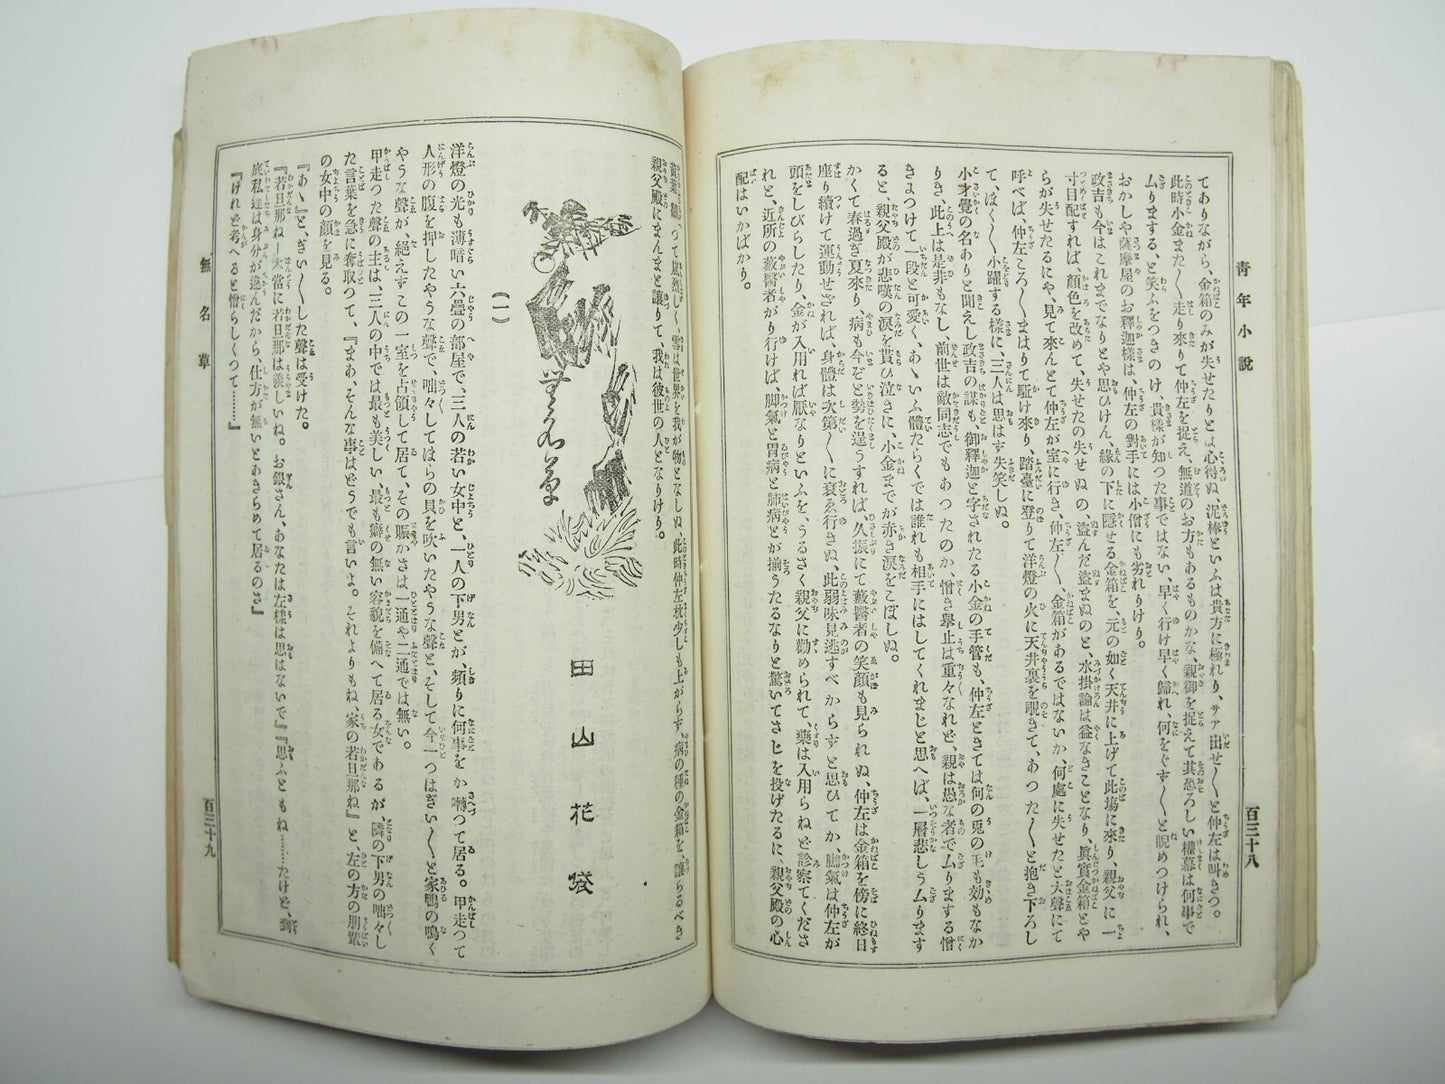 靑年小說
百三十八
てありながら、金箱のみが失せたりとは心得ぬ、泥棒といふは貴方に極れり、サァ出せ〱と仲左は叫きつ。
此時小金また〱走り來りて仲左を捉え、無道のお方もあるものかな、親御を捉えて其恐ろしい權幕は何事で
ムりまする、と笑ふをつきのけ、貴樣が知つた事ではない、早く行け早く歸れ、何をぐず〱と睨めつけられ、
おかしや薩摩屋のお釋迦樣は、仲左の對手には小僧にも劣れりけり。
政吉も今はこれまでなりとや思ひけん、緣の下に隱せる金箱を、元の如く天井に上げて此塲に來り、親父に一
寸目配すれば、顏色を改めて、失せたの失せぬの、盜んだ盜まぬのと、水掛論は益なきことなり、眞實金箱とや
らが失せたるにや、見て來んとて仲左が室に行き、仲左〱金箱があるではないか、何處に失せたと大聲にて
呼べば、仲左ころ〱まはりて駈け來り、踏臺に登りて洋燈の火に天井裏を覗きて、あつた〱と抱き下ろし
て、ほく〱小躍する樣に、三人は思はず失笑しぬ。
小才覺の名ありと聞えし政吉の謀も、御釋迦と字されたる小金の手管も、仲左ときては何の兎の毛も効もなか
りき、此上は是非もなし、前世は敵同志でもあつたのか、憎き擧止は重々なれど、親は愚な者でムりまする憎
きよつけて一段と可愛く、あゝいふ體たらくでは誰れも相手にはしてくれまじと思へば、一層悲しうムります
ると、親父殿が悲嘆の淚を貰ひ泣きに、小金までが赤き淚をこぼしぬ。
かくて春過ぎ夏來り、病も今ぞと勢を逞うすれば、久振にて藪醫者の笑顏も見られぬ、仲左は金箱を傍に終日
座り續けて運動せざれば、身體は次第〱に衰ゑ行きぬ、此弱味見逃すべからずと思ひてか、脚氣は仲左が
頭をしびらしたり、金が入用れば厭なりといふを、うるさく親父に勸められて、藥は入用らねど診察てくださ
れと、近所の藪醫者がり行けば、脚氣と胃病と肺病とが揃うたるなりと驚いてさじを投げたるに、親父殿の心
配はいかばかり。
つて風烈しく、雪は世界を我が物となしぬ、此時仲左枕少しも上がらず、病の種の金箱を、讓らるべき
親父殿にまんまと讓りて、我は彼世の人となりけり。
田山花袋
(一)
洋燈の光も薄暗い六疊の部屋で、三人の若い女中と、一人の下男とが、頻りに何事をか囀つて居る。甲走つて
人形の腹を押したやうな聲で、咄々してほらの貝を吹いたやうな聲と、そして今一つはぎい〱と家鴨の鳴く
やうな聲が、絕えずこの一室を占領して居て、その賑かさは一通や二通では無い。
甲走つた聲の主は、三人の中では最も美しい、最も癖の無い容貌を備へて居る女であるが、隣の下男の咄々し
た言葉を急に奪取つて、『まあ、そんな事はどうでも言いよ。それよりもね、家の若旦那ね』と、左の方の朋輩
の女中の顏を見る。
『あゝ』と、ぎい〱した聲は受けた。
『若旦那ねー本當に若旦那は羨しいね。お銀さん、あなたは左樣は思はないで』『思ふともね……たけど、到
底私達は身分が違んだから、仕方が無いとあきらめて居るのさ』
『けれど考へると憎らしくつて………』
無名草
百三十九